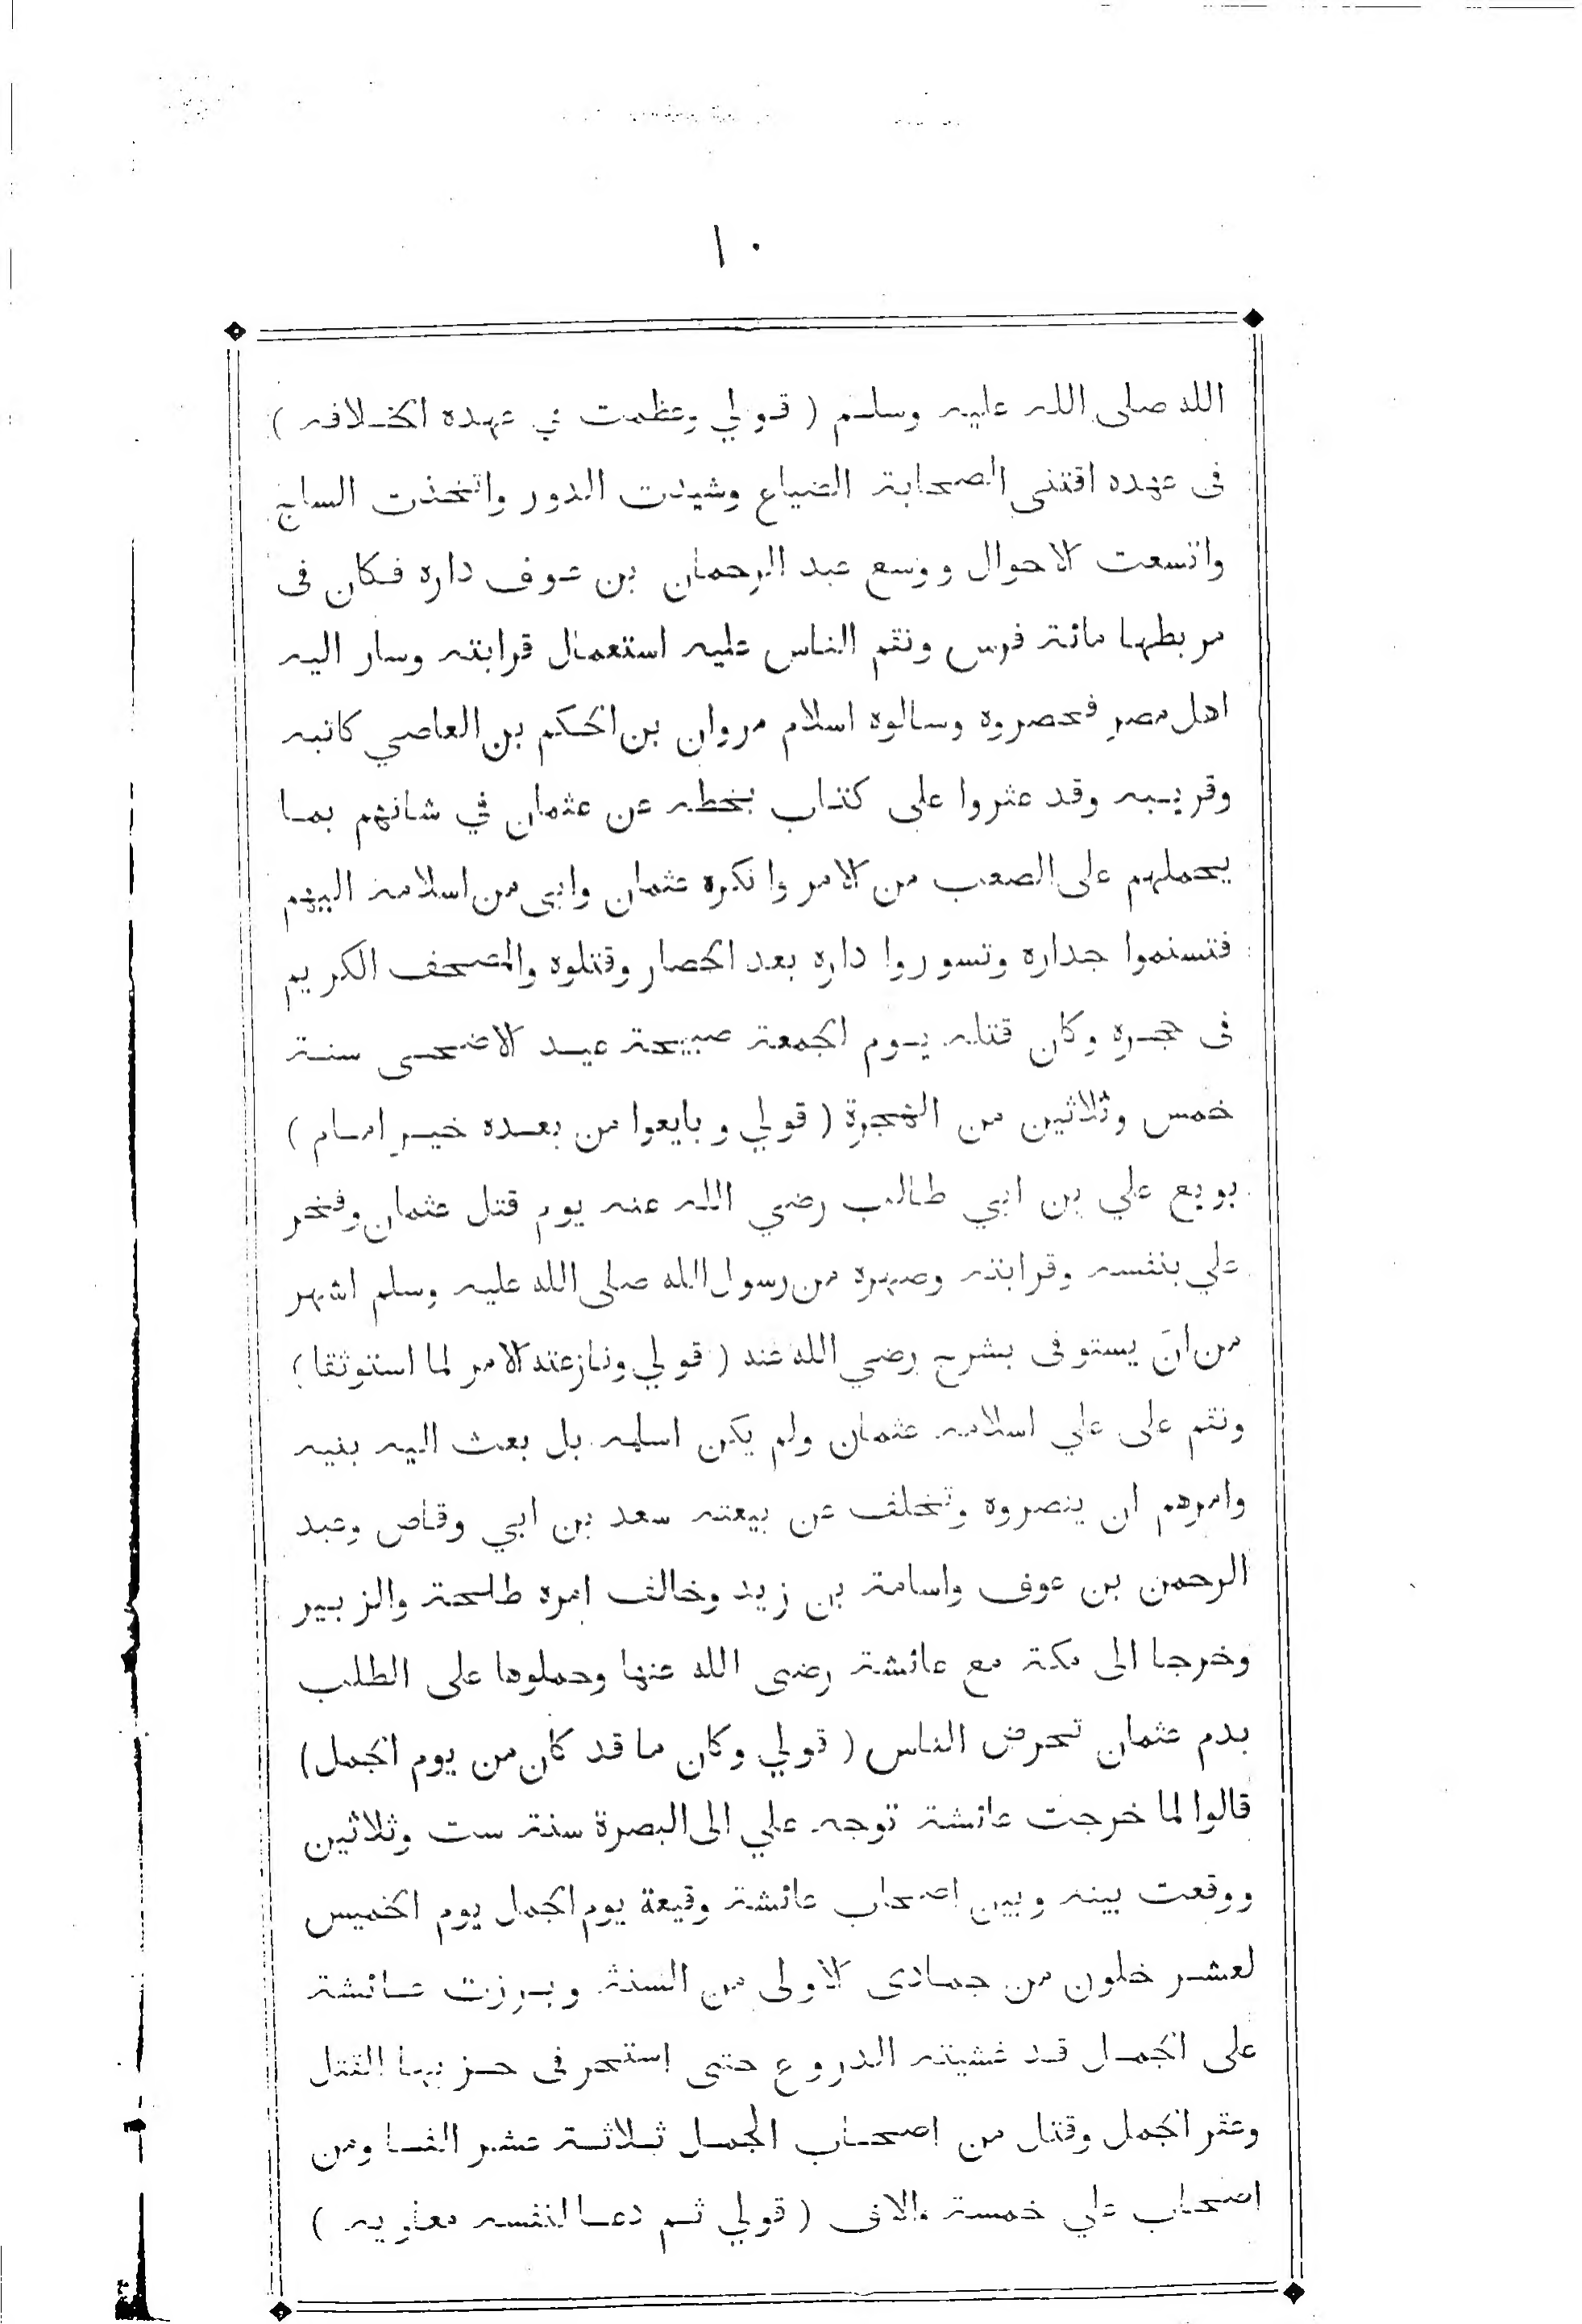 ١٠
الله صلى الله عليه وسلم ( قولي وعظمت في عهده الخلافه )
فى عهده اقتنى الصحابة الضياع وشيدت الدور واتخذت الساج
واتسعت الاحوال ووسع عبد الرحمان بن عوف داره فكان فى
مربطها مائة فرس ونقم الناس عليه استعمال قرابته وسار اليه
اهل مصر فحصروه وسالوه اسلام مروان بن الحكم بن العاصي كاتبه
وقريبه وقد عثروا على كتاب بخطه عن عثمان في شانهم بما
يحملهم على الصعب من الامر وانكره عثمان وابى من اسلامه اليهم
فتسنموا جداره وتسوروا داره بعد الحصار وقتلوه والمصحف الكريم
فى حجره وكان قتله يوم الجمعة صبيحة عيد الاضحى سنة
خمس وثلاثين من الهجرة ( قولي وبايعوا من بعده خير امام )
بويع علي بن ابي طالب رضي الله عنه يوم قتل عثمان وفخر
علي بنفسه وقرابته وصهره من رسول الله صلى الله عليه وسلم اشهر
من ان يستوفى بشرح رضي الله عنه ( قولي ونازعته الامر لما استوثقا )
ونقم على علي اسلامه عثمان ولم يكن اسلمه بل بعث اليه بنيه
وامرهم ان ينصروه وتخلف عن بيعته سعد بن ابي وقاص وعبد
الرحمن بن عوف واسامة بن زيد وخالف امره طلحة والزبير
وخرجا الى مكة مع عائشة رضى الله عنها وحملوها على الطلب
بدم عثمان تحرض الناس ( قولي وكان ما قد كان من يوم الجمل )
قالوا لما خرجت عائشة توجه علي الى البصرة سنة ست وثلاثين
ووقعت بينه وبين اصحاب عائشة وقيعة يوم الجمل يوم الخميس
لعشر خلون من جمادى الاولى من السنة وبرزت عائشة
على الجمل قد غشيته الدروع حتى استحر فى حزبها القتل
وعقر الجمل وقتل من اصحاب الجمل ثلاثة عشر الفا ومن
اصحاب علي خمسة ءالاف ( قولي ثم دعا لنفسه معاويه )